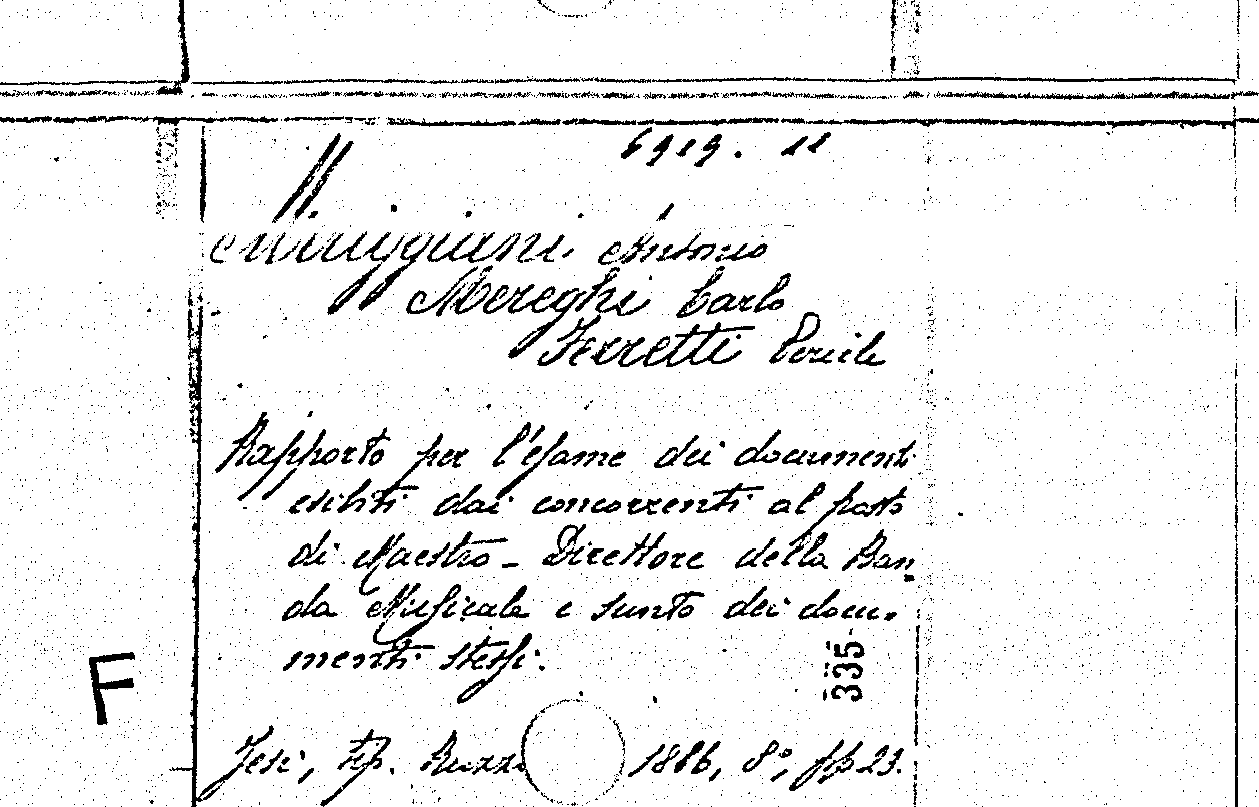 6919. 11
Antonio
Mereghi Carlo
Ferretti Percile
Rapporto per l'esame dei documenti
esibiti dai concorrenti al posto
di Maestro - Direttore della Ban
da Musicale e sunto dei docu-
menti stessi.
335
F
Jesi, tip. 1886, 8°, pp 23.